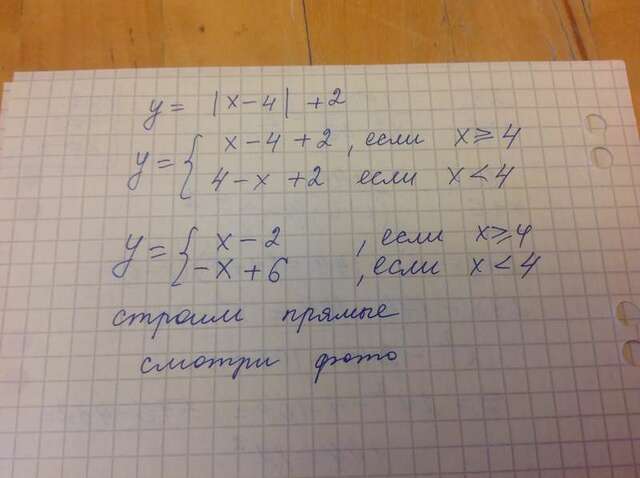 y = |x-4| +2
y = { x-4+2, если x ≥ 4
4-x+2 если x < 4
y = { x-2 , если x ≥ 4
-x+6 , если x < 4
строим прямые
смотри фото